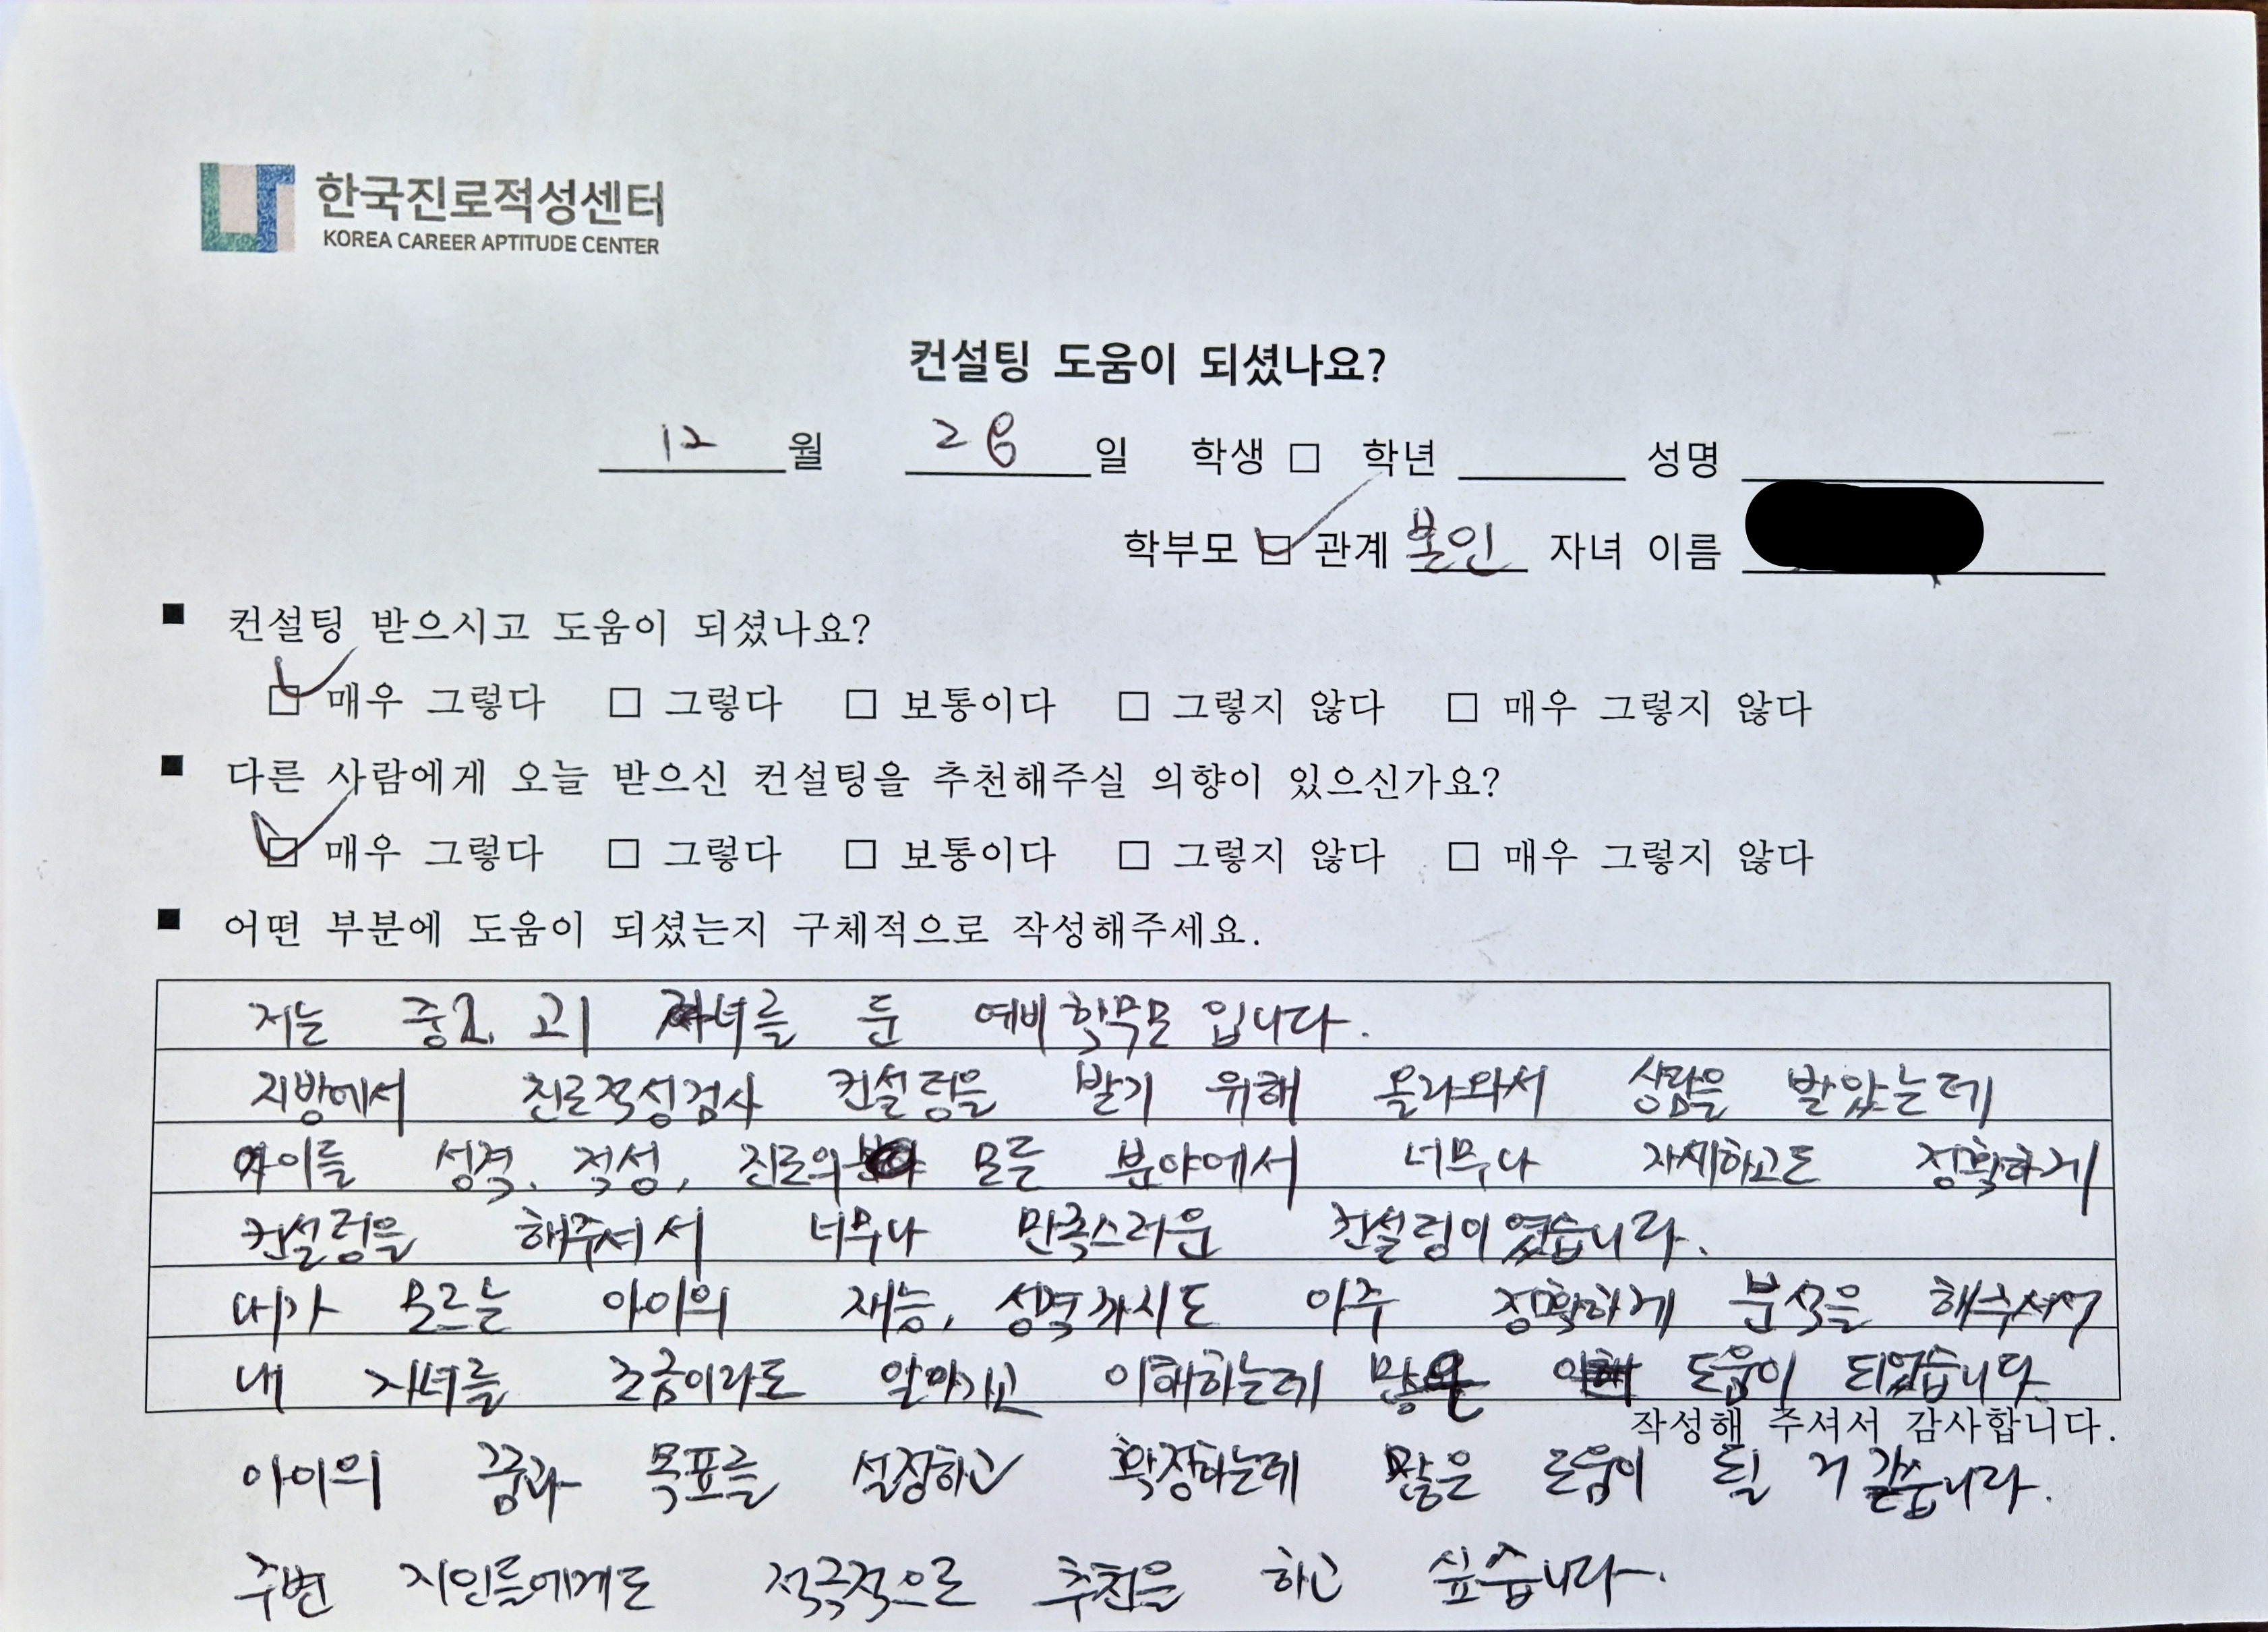 한국진로적성센터
KOREA CAREER APTITUDE CENTER
컨설팅 도움이 되셨나요?
12 월 26 일 학생 □ 학년 성명
학부모 ☑ 관계 본인 자녀 이름
■ 컨설팅 받으시고 도움이 되셨나요?
☑ 매우 그렇다 □ 그렇다 □ 보통이다 □ 그렇지 않다 □ 매우 그렇지 않다
■ 다른 사람에게 오늘 받으신 컨설팅을 추천해주실 의향이 있으신가요?
☑ 매우 그렇다 □ 그렇다 □ 보통이다 □ 그렇지 않다 □ 매우 그렇지 않다
■ 어떤 부분에 도움이 되셨는지 구체적으로 작성해주세요.
저는 고1 자녀를 둔 예비 학부모 입니다.
지방에서 진로적성검사 컨설팅을 받기 위해 올라와서 상담을 받았는데
아이를 성격, 적성, 진로의 모든 분야에서 너무나 자세하고도 정확하게
컨설팅을 해주셔서 너무나 만족스러운 컨설팅이였습니다.
내가 모르는 아이의 재능, 성격까지도 아주 정확하게 분석을 해주셔서
내 자녀를 조금이라도 알아가고 이해하는데 많은 도움이 되었습니다
작성해 주셔서 감사합니다.
아이의 꿈과 목표를 설정하고 확장하는데 많은 도움이 될 거 같습니다.
주변 지인들에게도 적극적으로 추천을 하고 싶습니다.